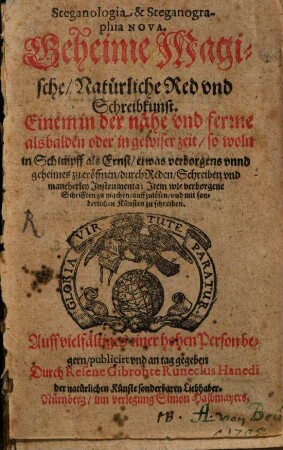 Steganologia & Steganogra-
phia NOVA.
Geheime Magi-
sche/ Natürliche Red vnd
Schreibkunst.
Einem in der nähe vnd ferrne
alsbalden oder in gewiser zeit/ so wol
in Schimpff als Ernst/ etwas verborgens vnnd
geheimes zueröffnen/ durch Reden/ Schreiben vnd
mancherley Instrumenta: Item wie verborgene
Schrifften zu machen/ auffzulösen/ vnd mit son-
derlichen Künsten zu schreiben.
GLORIA VIRTUTE PARATUR
Auff vielfältiges einer hohen Person be-
gern/ publicirt vnd an tag gegeben
Durch Resene Gibronte Runeclus Hanedi
der natürlichen Künste sonderbaren Liebhaber.
Nürnberg/ inn verlegung Simon Halbmayers.
A. von